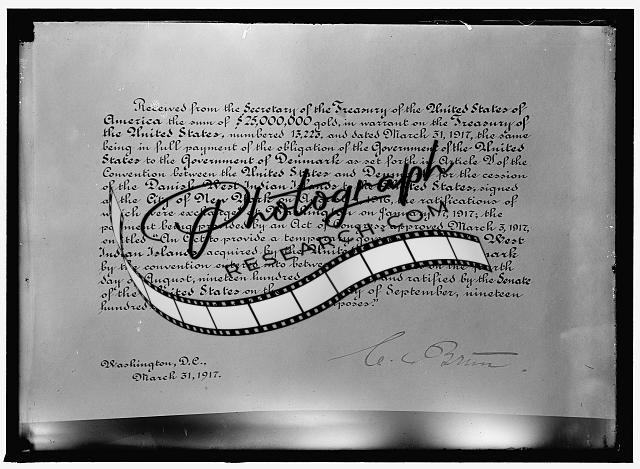 Received from the Secretary of the Treasury of the United States of
America the sum of $25,000,000 gold, in warrant on the Treasury of
the United States, numbered 13,223, and dated March 31, 1917, the same
being in full payment of the obligation of the Government of the United
States to the Government of Denmark as set forth in Article V of the
Convention between the United States and Denmark for the cession
of the Danish West Indian Islands to the United States, signed
at the City of New York on 1916, the ratifications of
which were exchanged on January 17, 1917, the
payment being provided by an Act of Congress approved March 3, 1917,
entitled "An Act to provide a temporary West
Indian Islands acquired by the United mark
by the convention entered into between the
day of August, nineteen hundred and ratified by the Senate
of the United States on the of September, nineteen
hundred poses."
Photograph
RESEARCH ON
Washington, D.C.,
March 31, 1917.
C. Brun